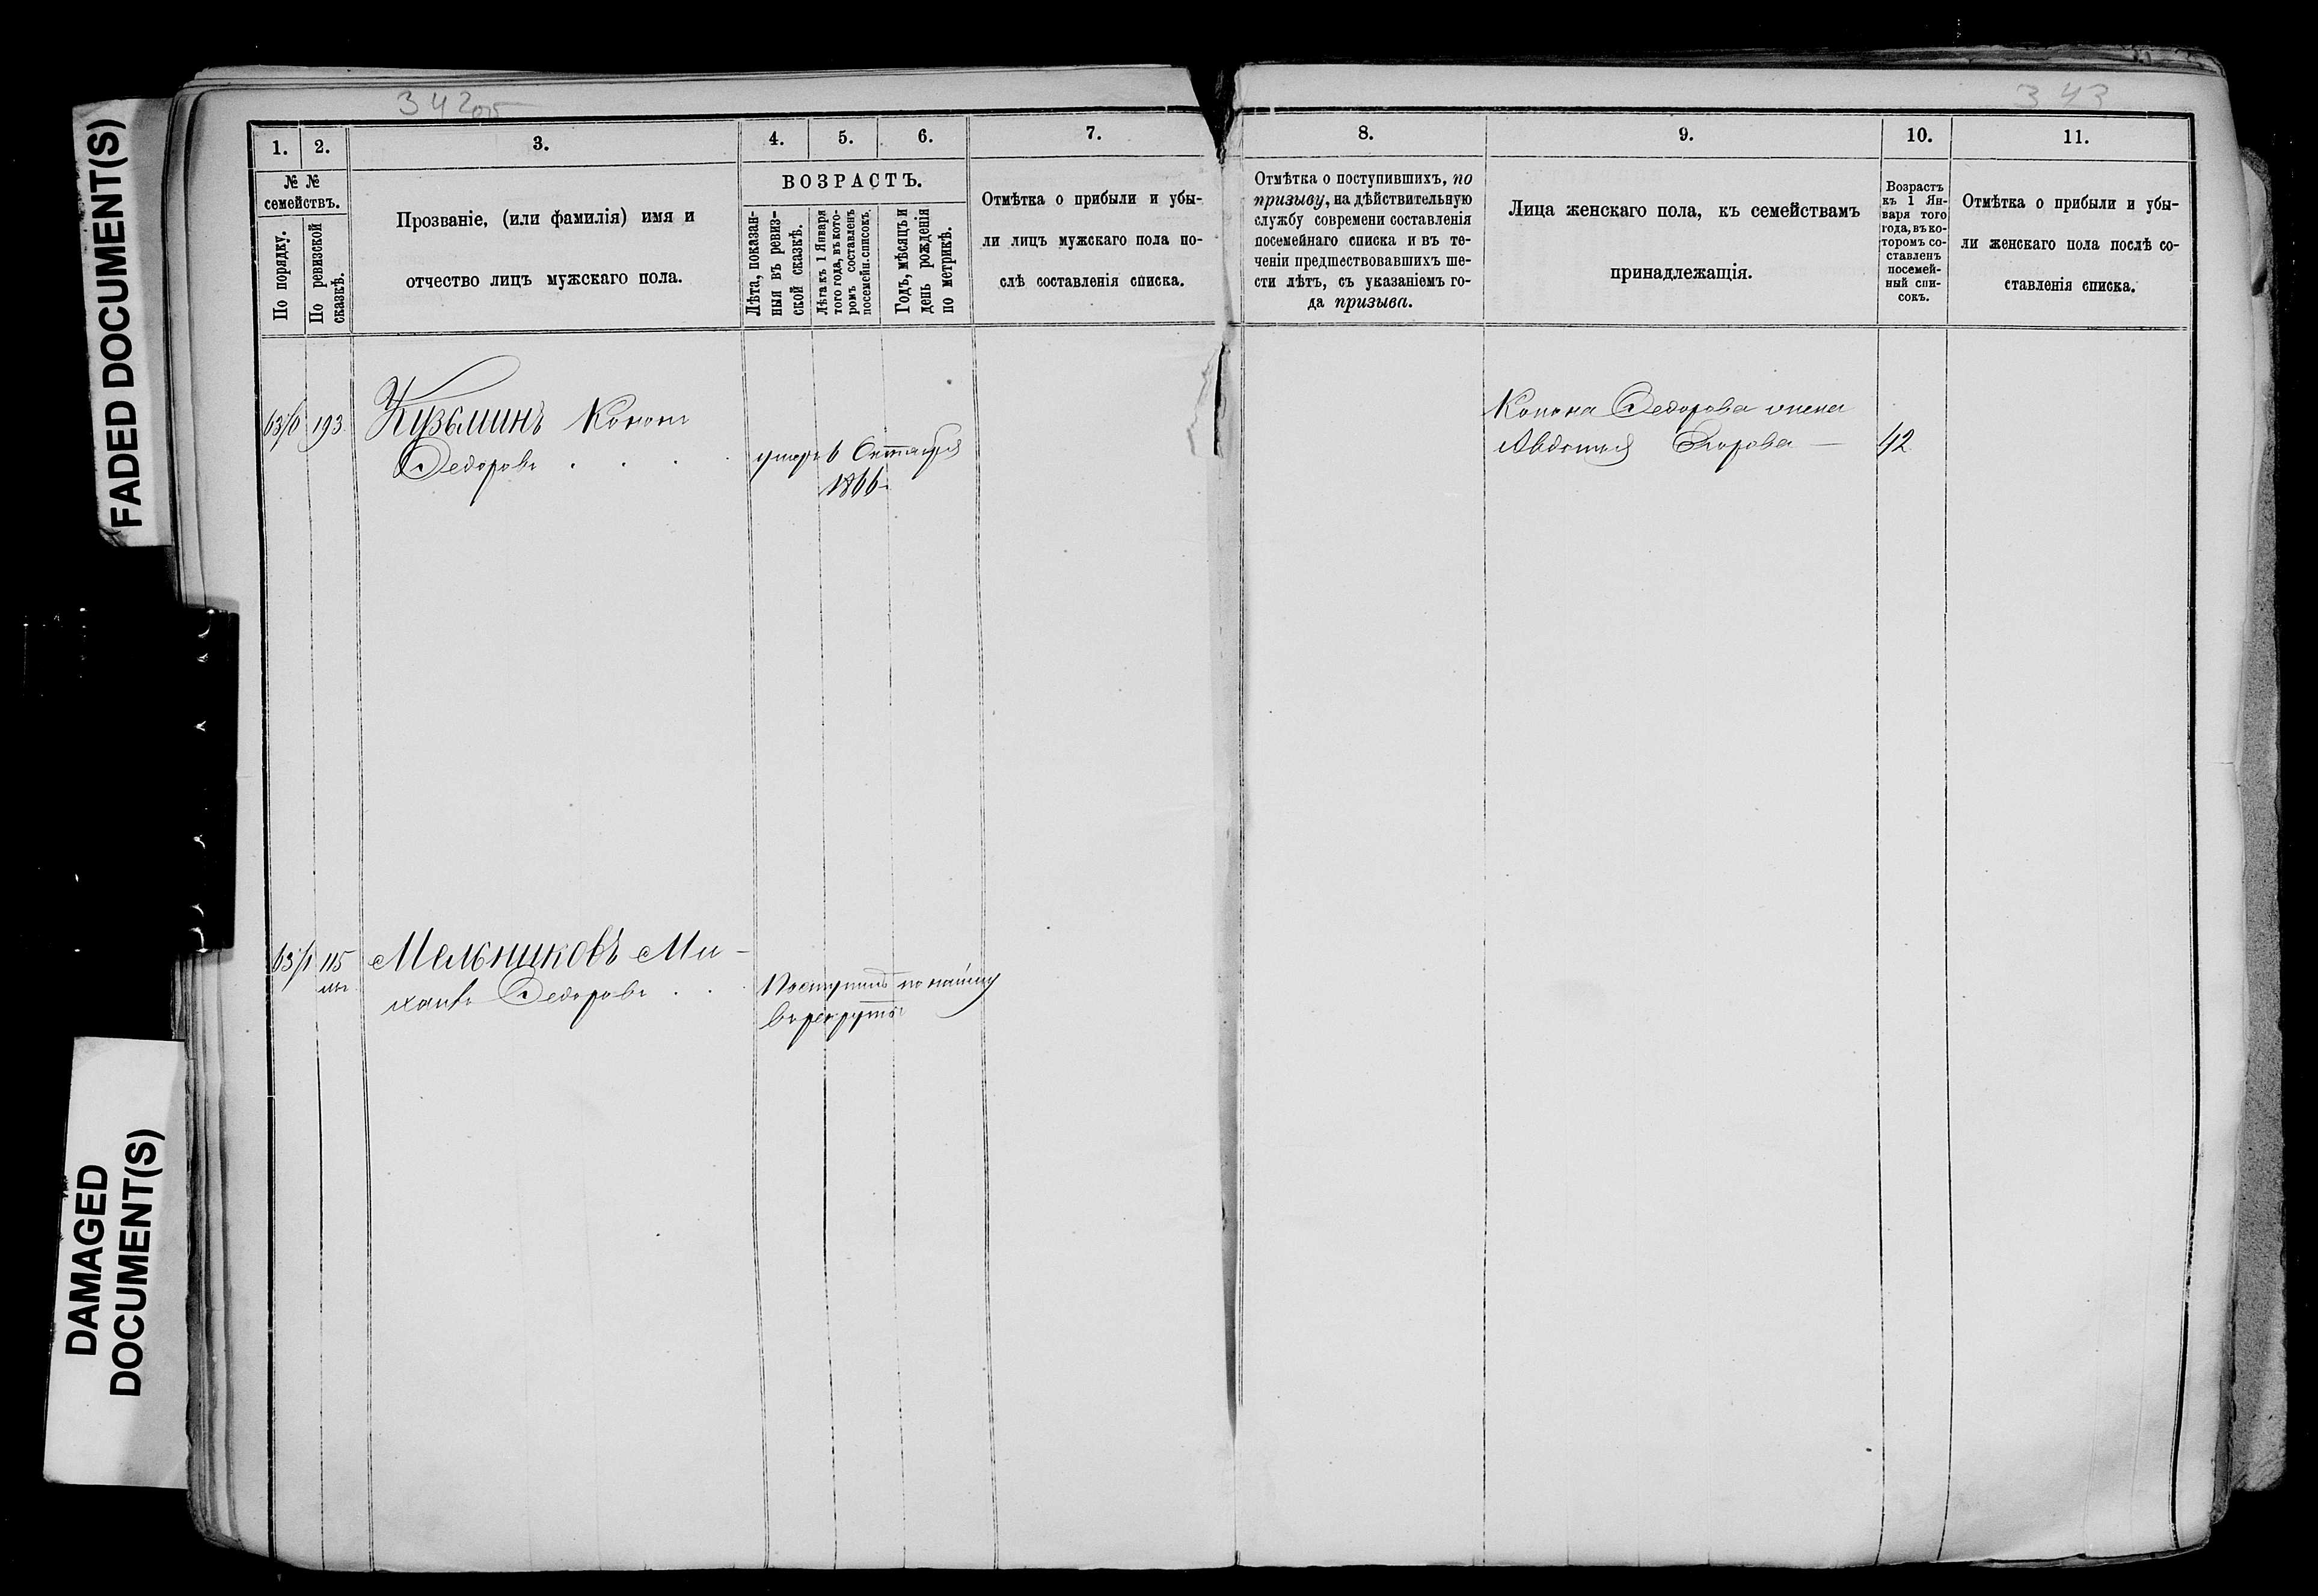 FADED DOCUMENT(S)
DAMAGED
DOCUMENT(S)
342об
343
1.
2.
3.
4.
5.
6.
7.
8.
9.
10.
11.
№ №
семействъ.
По порядку.
По ревизской
сказкѣ.
Прозваніе, (или фамилія) имя и
отчество лицъ мужскаго пола.
ВОЗРАСТЪ.
Лѣта, показан-
ныя въ ревиз-
ской сказкѣ.
Лѣта къ 1 Января
того года, въ кото-
ромъ составленъ
посемейн. списокъ.
Годъ, мѣсяцъ и
день рожденія
по метрикѣ.
Отмѣтка о прибыли и убы-
ли лицъ мужскаго пола по-
слѣ составленія списка.
Отмѣтка о поступившихъ, по
призыву, на дѣйствительную
службу современи составленія
посемейнаго списка и въ те-
ченіи предшествовавшихъ ше-
сти лѣтъ, съ указаніемъ го-
да призыва.
Лица женскаго пола, къ семействамъ
принадлежащія.
Возрастъ
къ 1 Ян-
варя того
года, въ ко-
торомъ со-
ставленъ
посемей-
ный спи-
сокъ.
Отмѣтка о прибыли и убы-
ли женскаго пола послѣ со-
ставленія списка.
193
Кузьминъ Кононъ
Ѳедоровъ . . . .
умеръ
1866
Конона Ѳедорова жена
Авдотья
42
115
Мельниковъ Ми-
хаилъ Ѳедоровъ . .
Поступилъ по найму
въ рекруты